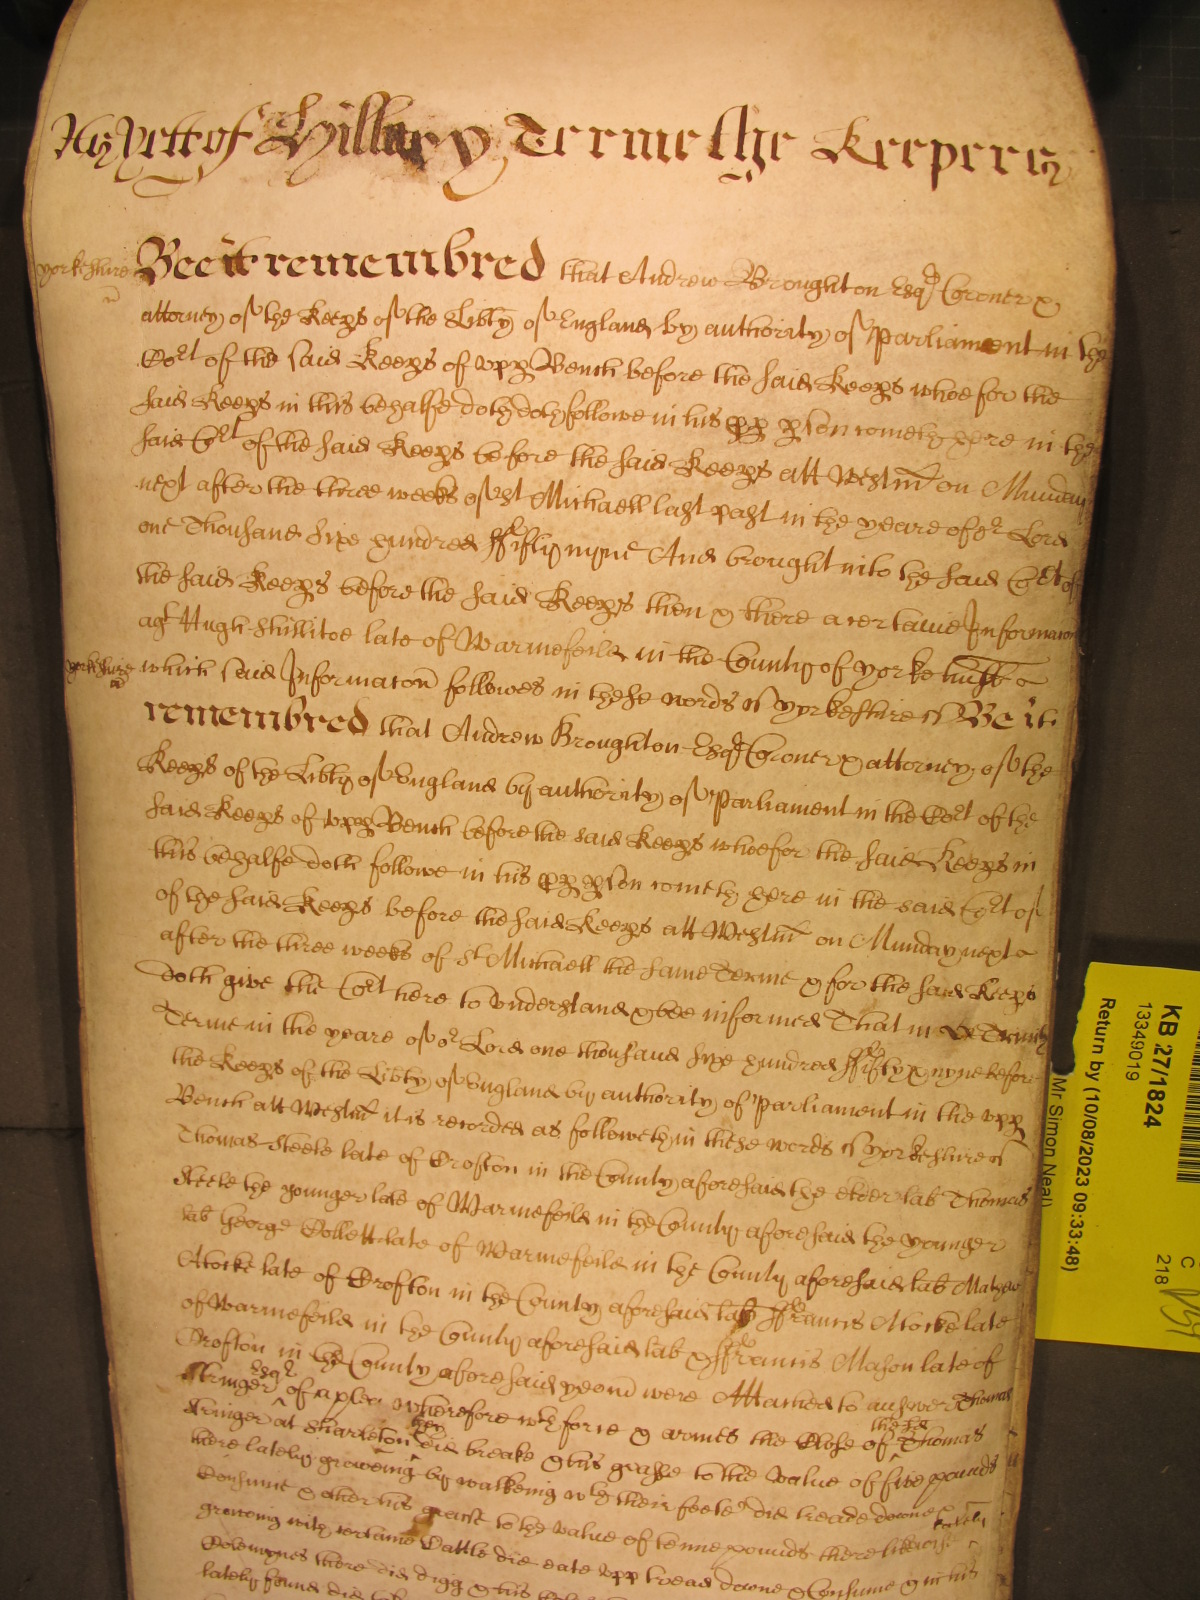 As yett of Hillary Terme the Keepers
yorkshire
Bee it remembred that Andrew Broughton Esqr Coroner &
attorney of the Keeps of the Libty of England by authority of Parliament in the
Cort of the said Keeps of upp Bench before the said Keeps whoe for the
said Keeps in this behalfe doth doth followe in his pp pson cometh here in the
said Cort of the said Keeps before the said Keeps att Westmr on Munday
next after the three weeks of St Michaell last past in the yeare of or Lord
one Thousand sixe hundred ffifty nyne And brought into the said Cort of
the said Keeps before the said Keeps then & there a certaine Informacon
agt Hugh Shillitoe late of Warmefeild in the County of yorke
yorkshire
which said Informacon followes in these words ss yorkeshire ss Be it
remembred that Andrew Broughton Esqr Coroner & attorney of the
Keeps of the Libty of England by authority of Parliament in the Cort of the
said Keeps of upp Bench before the said Keeps whoe for the said Keeps in
this behalfe doth followe in his pp pson cometh here in the said Cort of
of the said Keeps before the said Keeps att Westmr on Munday next
after the three weeks of St Michaell the same Terme & for the said Keeps
doth give the Cort here to understand & bee informed That in Trinity
Terme in the yeare of or Lord one thousand sixe hundred ffifty & nyne before
the Keeps of the Libty of England by authority of Parliament in the upp
Bench att Westmr it is recorded as followeth in these words ss yorkeshire ss
Thomas Steele late of Crofton in the County aforesaid the elder lab Thomas
Steele the younger late of Warmefeild in the County aforesaid the younger
lab George Collett late of Warmefeild in the County aforesaid lab Mathew
Stocke late of Crofton in the County aforesaid lab ffrancis Stocke late
of Warmefeild in the County aforesaid lab & ffrancis Mason late of
Crofton in the County aforesaid yeom were Attached to answer Thomas
Stringer Esqr of a plea wherefore wth force & armes the Close of the sd Thomas
Stringer at Sharleston did breake & his grasse to the value of five pounds
there lately groweing by walkeing wth their feete did treade downe &
Consume & other his grasse to the value of tenne pounds there likewise
growing with certaine Cattle did eate upp tread downe & Consume & in his
Colemynes there did digg & his
lately found did
KB 27/1824
13349019
Return by (10/08/2023 09:33:48)
Mr Simon Neal)
C
218